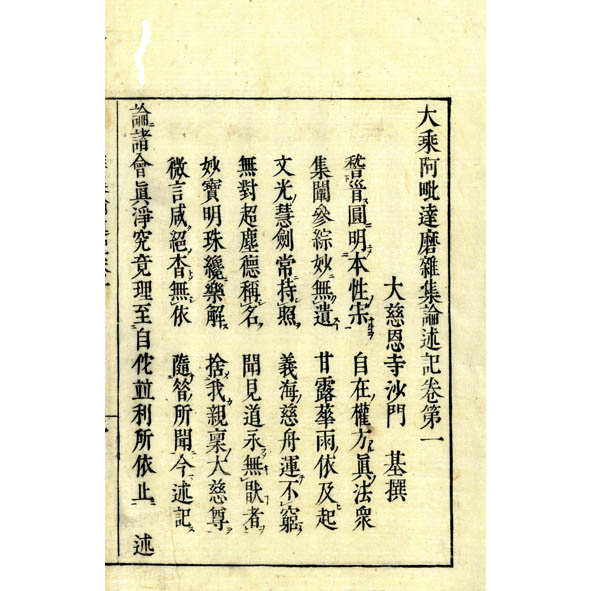 大乘阿毗達磨雜集論述記卷第一
大慈恩寺沙門 基撰
稽首圓明本性宗 自在權方眞法衆
集闡參綜妙無遺 甘露華雨依及起
文光慧劍常持照 義海慈舟運不窮
無對超塵德稱名 聞見道示無猒者
妙寶明珠纔樂解 捨我親稟大慈尊
微言咸絕杳無依 隨管所聞今述記
論諸會眞淨究竟理至自佗並利所依止 述